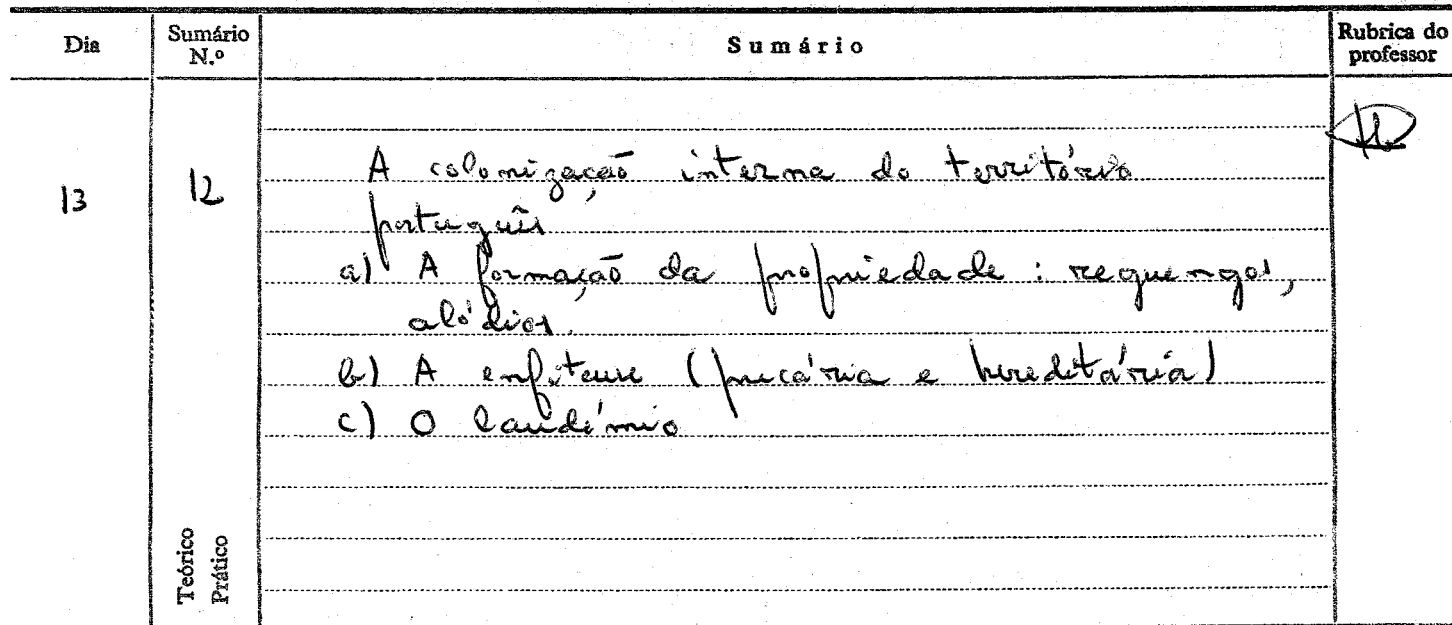 Dia
Sumário N.º
Sumário
Rubrica do professor
13
12
A colonização interna do território
português
a) A formação da propriedade : reguengos,
alódios.
b) A enfiteuse (precária e hereditária)
c) O laudémio
Teórico
Prático